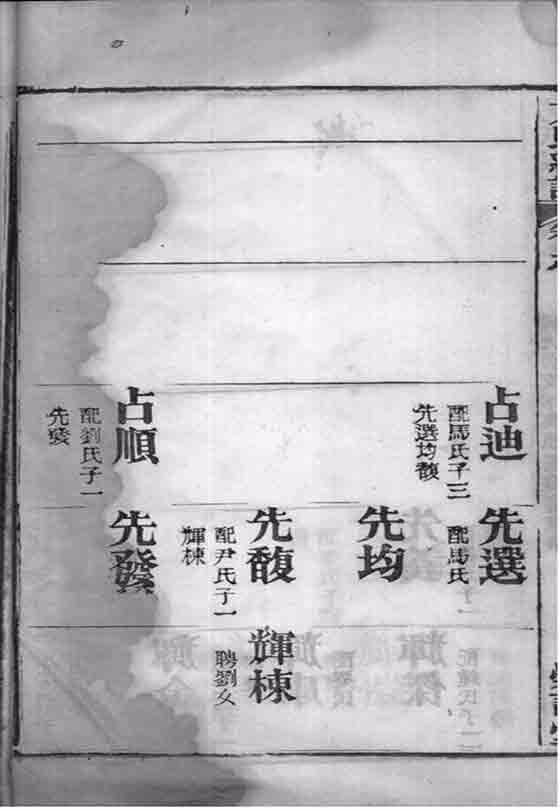 占迪
配馬氏子三
先選均馥
先選
配馬氏
先均
先馥
配尹氏子一
輝棟
輝棟
聘劉女
占順
配劉氏子一
先發
先發